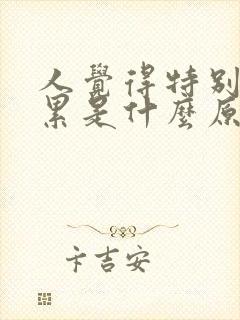 人覺得特別
累是什麼原
卞吉安